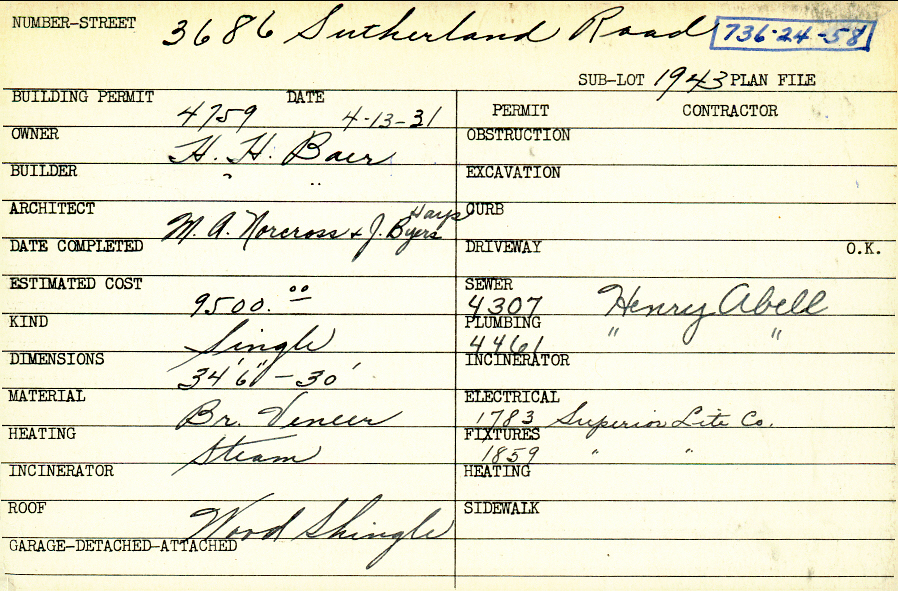 NUMBER-STREET 3686 Sutherland Road 736-24-58
SUB-LOT 1943 PLAN FILE
BUILDING PERMIT 4759 DATE 4-13-31
OWNER H. H. Baer
BUILDER " "
ARCHITECT M. A. Norcross & J. Harps Byers
DATE COMPLETED
ESTIMATED COST 9500.00
KIND Single
DIMENSIONS 34'6" - 30'
MATERIAL Br. Veneer
HEATING Steam
INCINERATOR
ROOF Wood Shingle
GARAGE-DETACHED-ATTACHED
PERMIT CONTRACTOR
OBSTRUCTION
EXCAVATION
CURB
DRIVEWAY O.K.
SEWER 4307 Henry Abell
PLUMBING 4461 " "
INCINERATOR
ELECTRICAL 1783 Superior Lite Co.
FIXTURES 1859 " "
HEATING
SIDEWALK